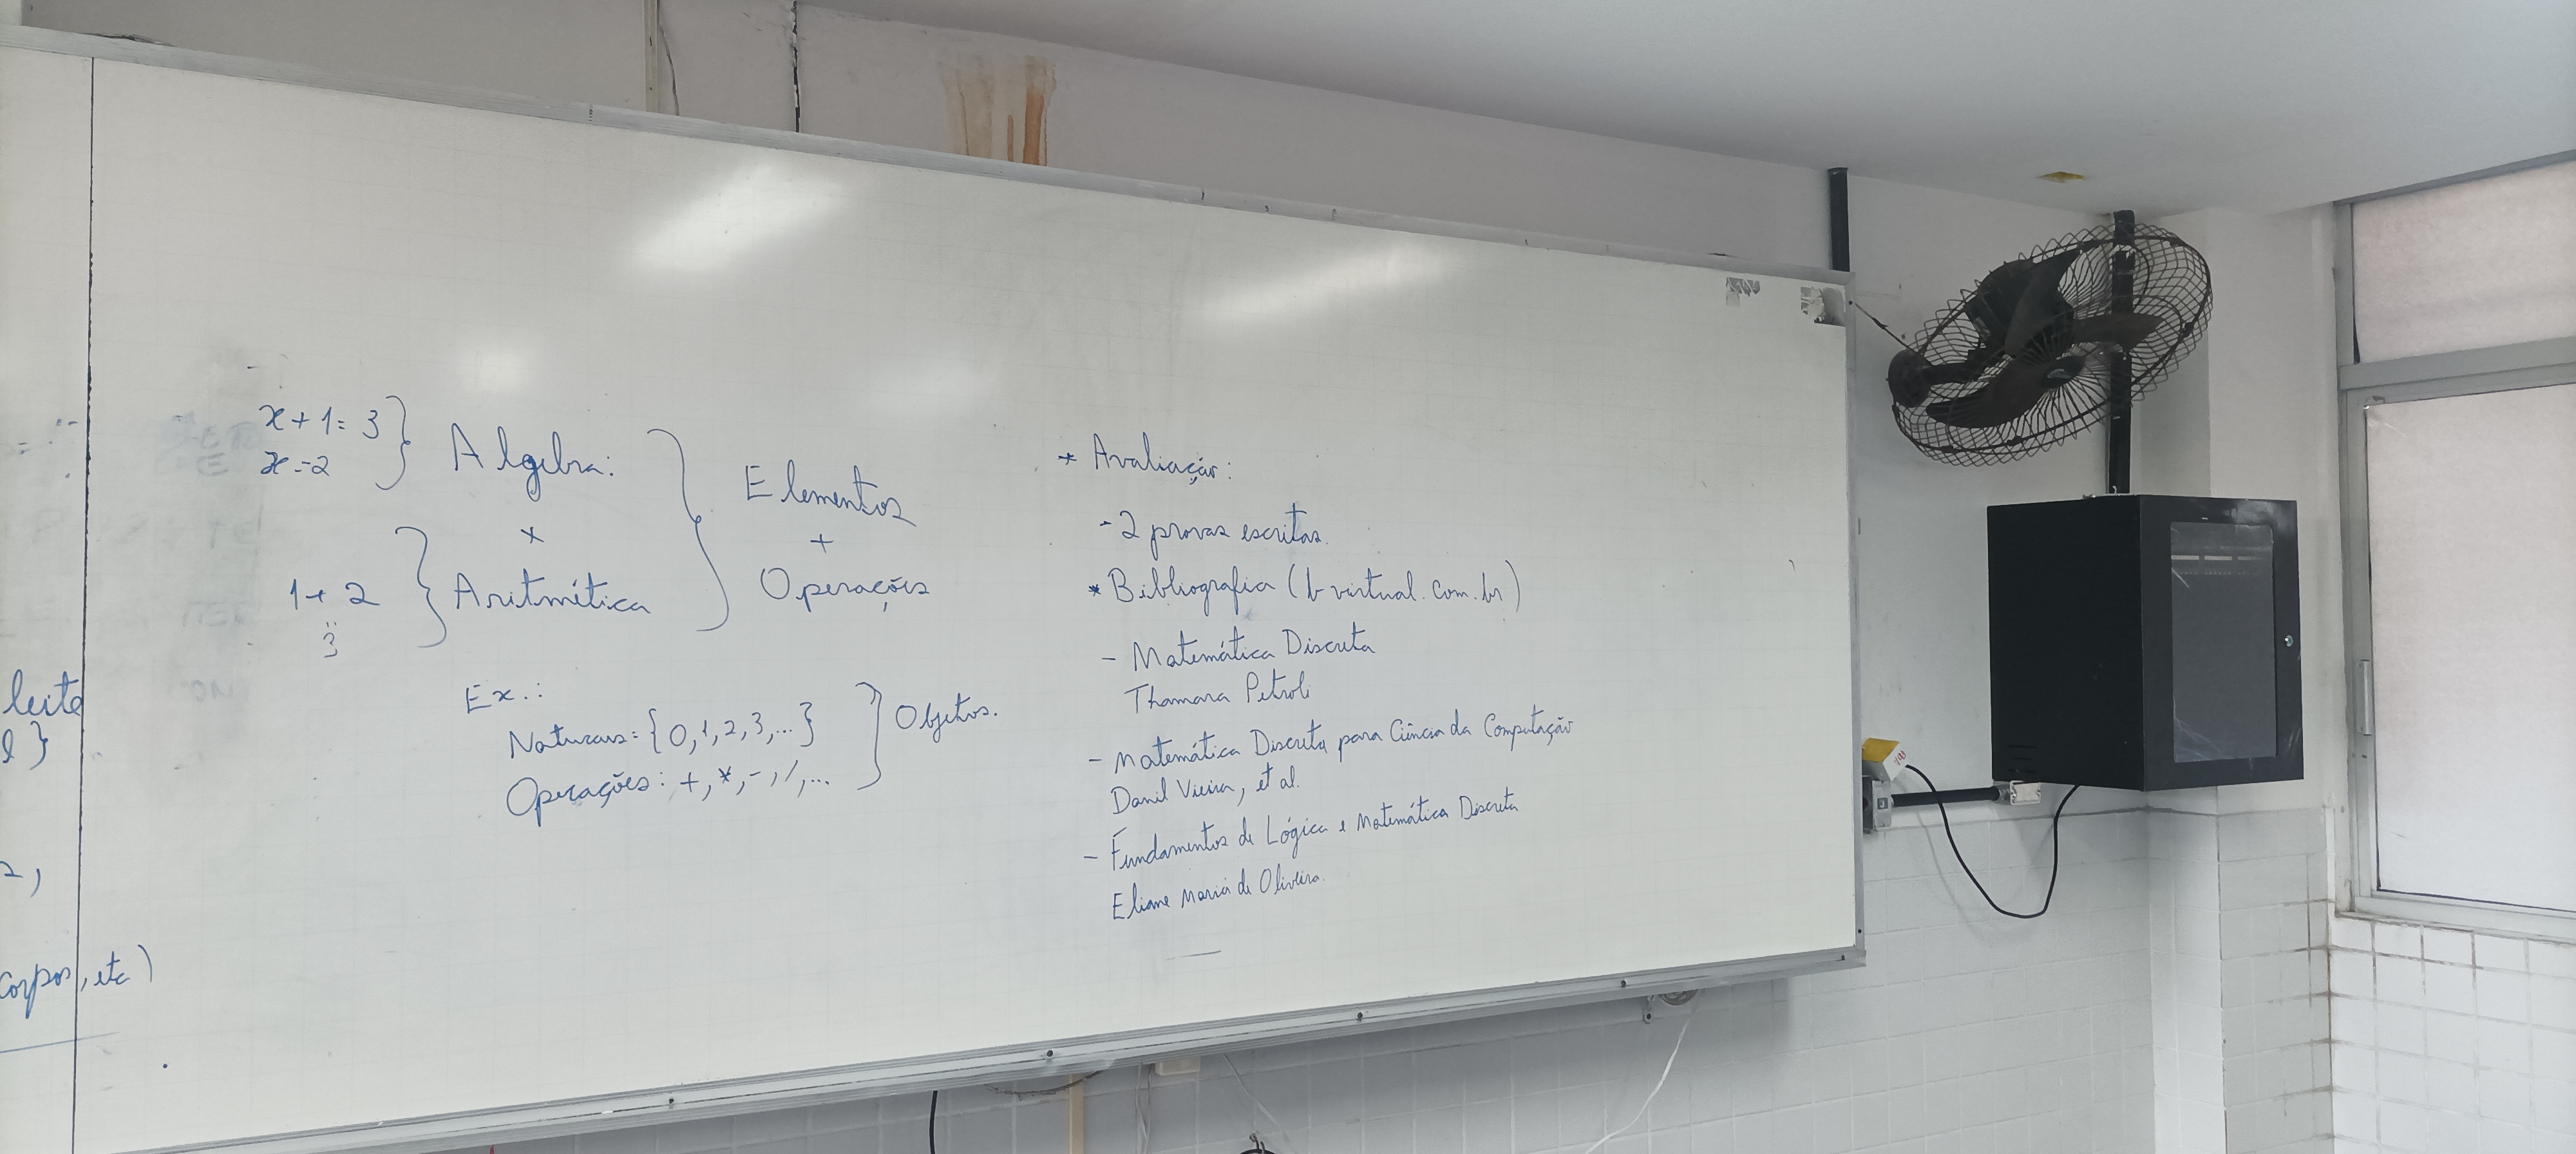 leite
l }
2,
corpos, etc)
x + 1 = 3 }
x = 2
Algebra:
x
1 + 2 }
3
Aritmética
Elementos
+
Operações
Ex.:
Naturais = {0, 1, 2, 3, ...}
Operações: +, *, -, /, ...
} Objetos.
* Avaliação:
- 2 provas escritas.
* Bibliografia (b virtual.com.br)
- Matemática Discreta
Thamara Petroli
- Matemática Discreta para Ciência da Computação
Danil Vieira, et al.
- Fundamentos de Lógica e Matemática Discreta
Eliane Maria de Oliveira.